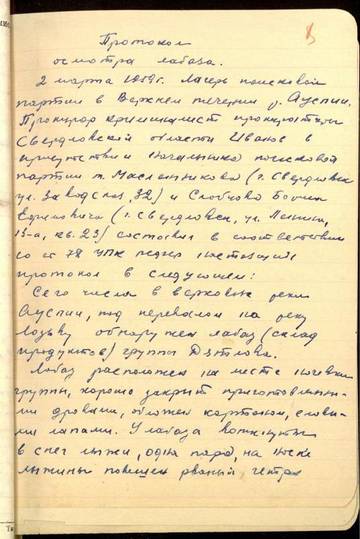 Протокол
осмотра лабаза.
2 марта 1959г. Лагерь поисковой
партии в верхнем течении р. Ауспии.
Прокурор криминалист прокуратуры
Свердловской области Иванов в
присутствии начальника поисковой
партии т. Масленникова (г. Свердловск
ул. Заводская, 32) и Слобцова Бориса
Ефимовича (г. Свердловск, ул. Ленина,
13-а, кв. 23) составил в соответствии
со ст 78 УПК РСФСР настоящий
протокол в следующем:
Сего числа в верховьях реки
Ауспии, под перевалом на реку
Лозьву обнаружен лабаз (склад
продуктов) группы Дятлова.
Лабаз расположен на месте ночевки
группы, хорошо закрыт приготовленны-
ми дровами, обложен картоном, елавы-
ми лапами. У лабаза воткнуты
в снег лыжи, одна пара, на носке
лыжины повешен рваный гетра